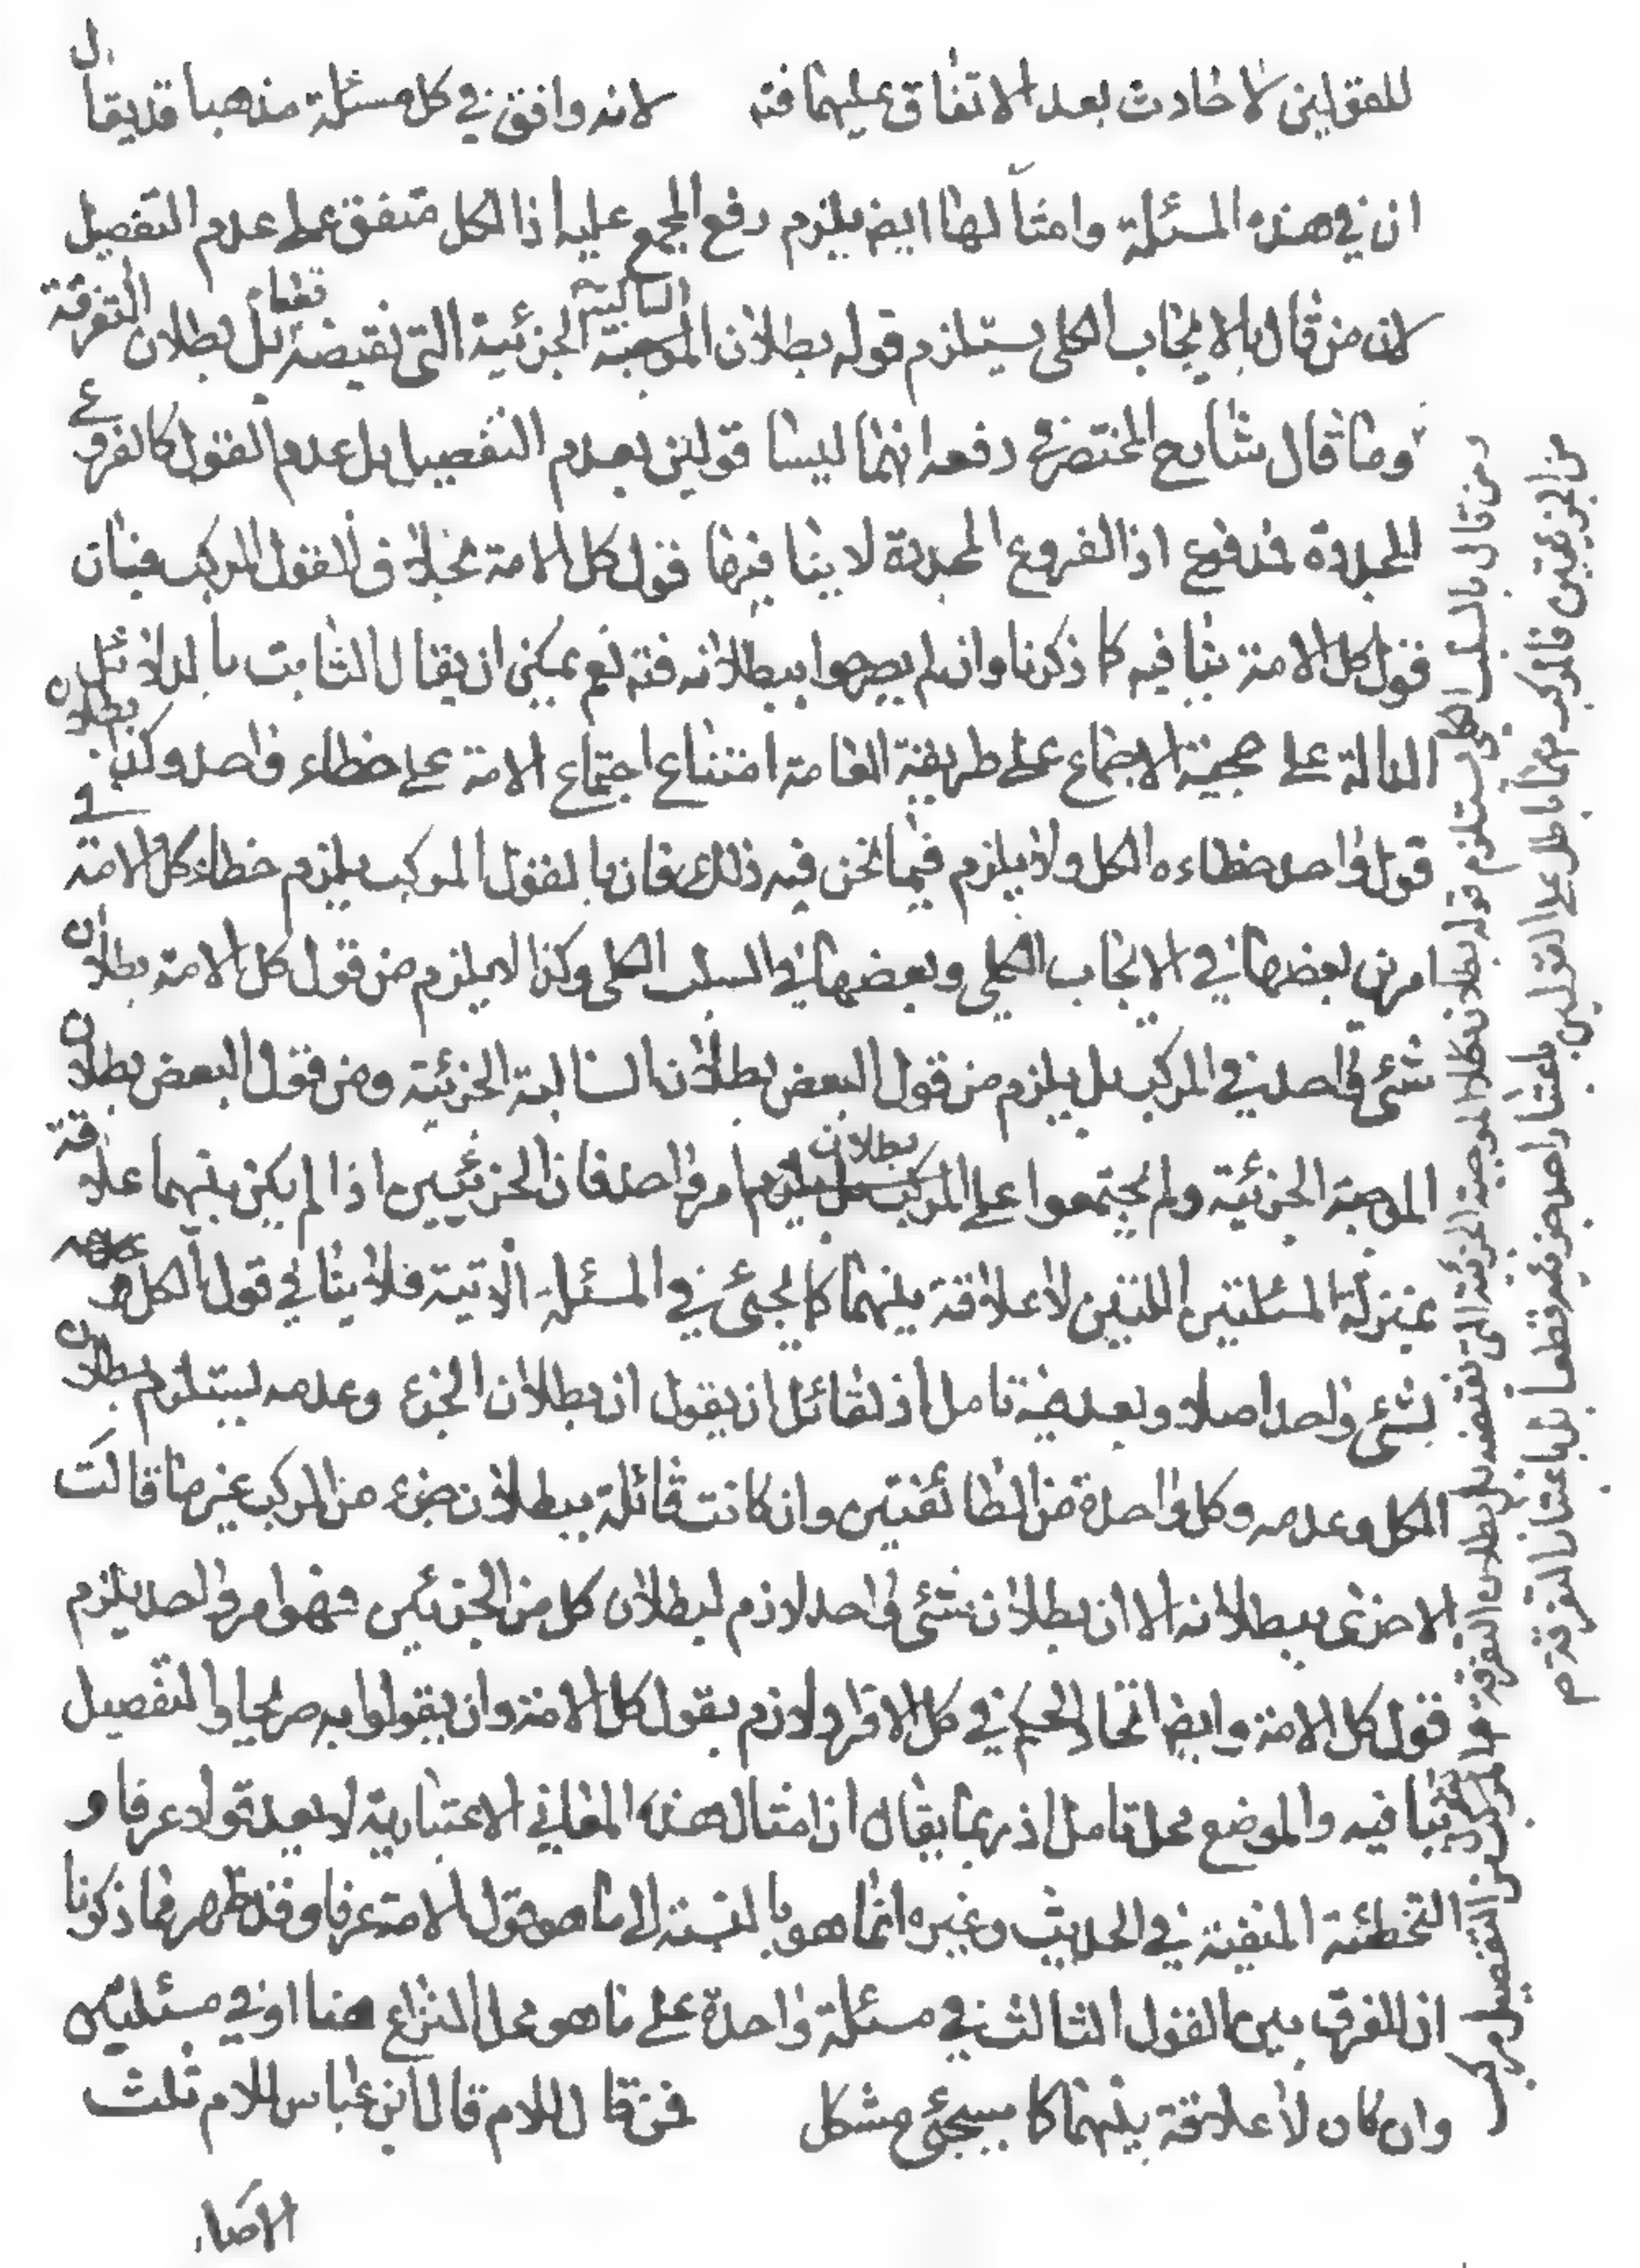 للقولين لا حادث بعد الاتفاق عليهما فته لانه وافق في كل مسئلة مذهبا قد يقال
ان في هذه المسئلة وامثالها ايض يلزم رفع المجمع عليه اذ الكل متفق على عدم التفصيل
لان من قال بالايجاب الكلى يستلزم قوله بطلان السالبة الجزئية التى نقيضه بل بطلان التفرقة
وما قال شارح المختصر في دفعه انهما ليسا قولين بعدم التفصيل بل عدم القول كالفروع
المجددة فمدفوع اذ الفروع المجددة لا ينافيها قول كل الامة بخلاف القول المركب فان
قول كل الامة ينافيه كما ذكرنا وان لم يصرحوا ببطلانه فته نعم يمكن ان يقال الثابت بالدلائل
الدالة على حجية الاجماع على طريقة العامة امتناع اجتماع الامة على خطاء واحد وكذا بطلان
قول واحد خطاءه الكل ولا يلزم فيما نحن فيه ذلك فان بالقول المركب يلزم خطاء كل الامة في
امرين بعضها في الايجاب الكلي وبعضها في السلب الكلى وكذا لا يلزم من قول كل الامة بطلان
شئ واحد في المركب بل يلزم من قول البعض بطلان السالبة الجزئية ومن قول البعض بطلان
الموجبة الجزئية ولم يجتمعوا على بطلان امر واحد فان الجزئيين اذا لم يكن بينهما علاقة
بمنزلة المسئلتين اللتين لا علاقة بينهما كما يجئ في المسئلة الاتية فلا ينافي قول الكل
بشئ واحد اصلا وبعد فيه تامل اذ لقائل ان يقول ان بطلان الجزء وعدمه يستلزم بطلان
الكل وعدمه وكل واحدة من الطائفتين وان كانت قائلة ببطلان جزء من المركب غير ما قالت
الاخرى ببطلانه الا ان بطلان شئ واحد لازم لبطلان كل من الجزئين فهو امر واحد يلزم
قول كل الامة وايضا اتحاد الحكم في كل الافراد لازم بقول كل الامة وان يقولوا به صريحا والتفصيل
ينافيه والموضع محل تامل اذ ربما يقال ان امثال هذه المعاني الاعتبارية لا يعد قولا عرفا و
التخطئة المنفية في الحديث وغيره انما هو بالنسبة الى ما هو قول الامة عرفا وقد ظهر مما ذكرنا
ان الفرق بين القول الثالث في مسئلة واحدة على ما هو محل النزاع هنا او في مسئلتين
وان كان لا علاقة بينهما كما سيجئ مشكل فمن قال للام قال ابن عباس للام ثلث
الاصل
ومن قال بالسلب الكلى يستلزم قوله بطلان الموجبة الجزئية التى نقيضه بل بطلان التفرقة والمركب من التفصيل مركب
من الجزئيتين فالمركب منهما باطل على القولين باعتبار احد جزئيه قطعا بل باعتبار التفرقة م